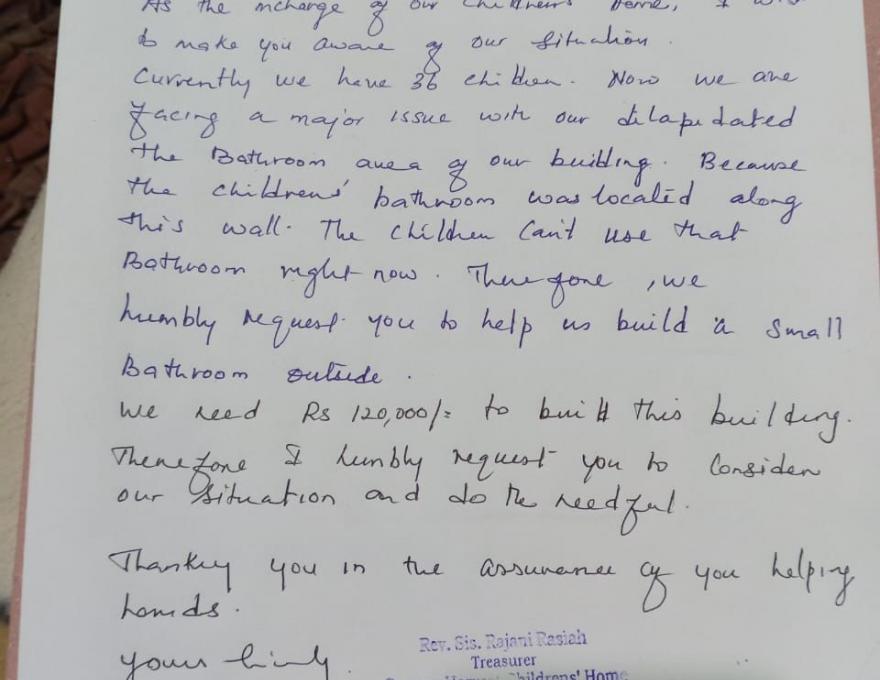 As the incharge of our Childrens' Home, I
to make you aware of our Situation.
Currently we have 36 children. Now we are
facing a major issue with our dilapedated
the Bathroom area of our building. Because
the childrens' bathroom was located along
this wall. The children Can't use that
Bathroom right now. Therefore, we
humbly request you to help us build a small
Bathroom outside.
We need Rs 120,000/= to built this building.
Therefore I humbly request you to Consider
our situation and do the needful.
Thanking you in the assurance of you helping
hands.
Yours
Rev. Sis. Rajani Rasiah
Treasurer
Childrens' Home